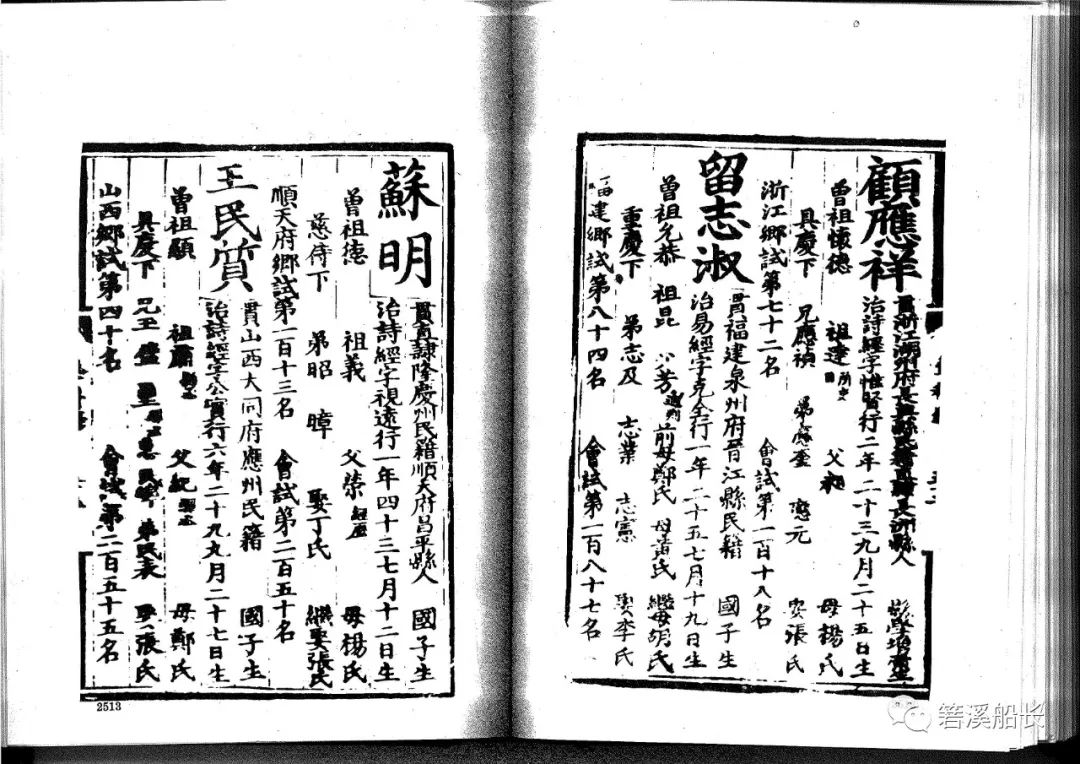 顧應祥
貫浙江湖州府長興縣民籍直隸長洲縣人
治詩經字惟賢行二年二十三九月二十五日生
曾祖懷德 祖達 父昶 母楊氏
具慶下 兄應禎 弟應奎 應元 娶張氏
浙江鄉試第七十二名 會試第一百十八名
留志淑
貫福建泉州府晉江縣民籍 國子生
治易經字克全行一年二十五七月十九日生
曾祖允恭 祖昆 父芳 前母鄭氏 母黃氏 繼母胡氏
重慶下 弟志及 志業 志憲 娶李氏
福建鄉試第八十四名 會試第一百八十七名
蘇明
貫直隸隆慶州民籍順天府昌平縣人 國子生
治詩經字視遠行一年四十三七月十二日生
曾祖德 祖義 父榮 母楊氏
慈侍下 弟昭 暲 娶丁氏 繼娶張氏
順天府鄉試第一百十三名 會試第二百五十名
王民質
貫山西大同府應州民籍 國子生
治詩經字公實行六年二十九九月二十七日生
曾祖顯 祖肅 父紀 母鄭氏
具慶下 兄王盛 弟民表 娶張氏
山西鄉試第四十名 會試第二百五十五名
2513
箬溪船长